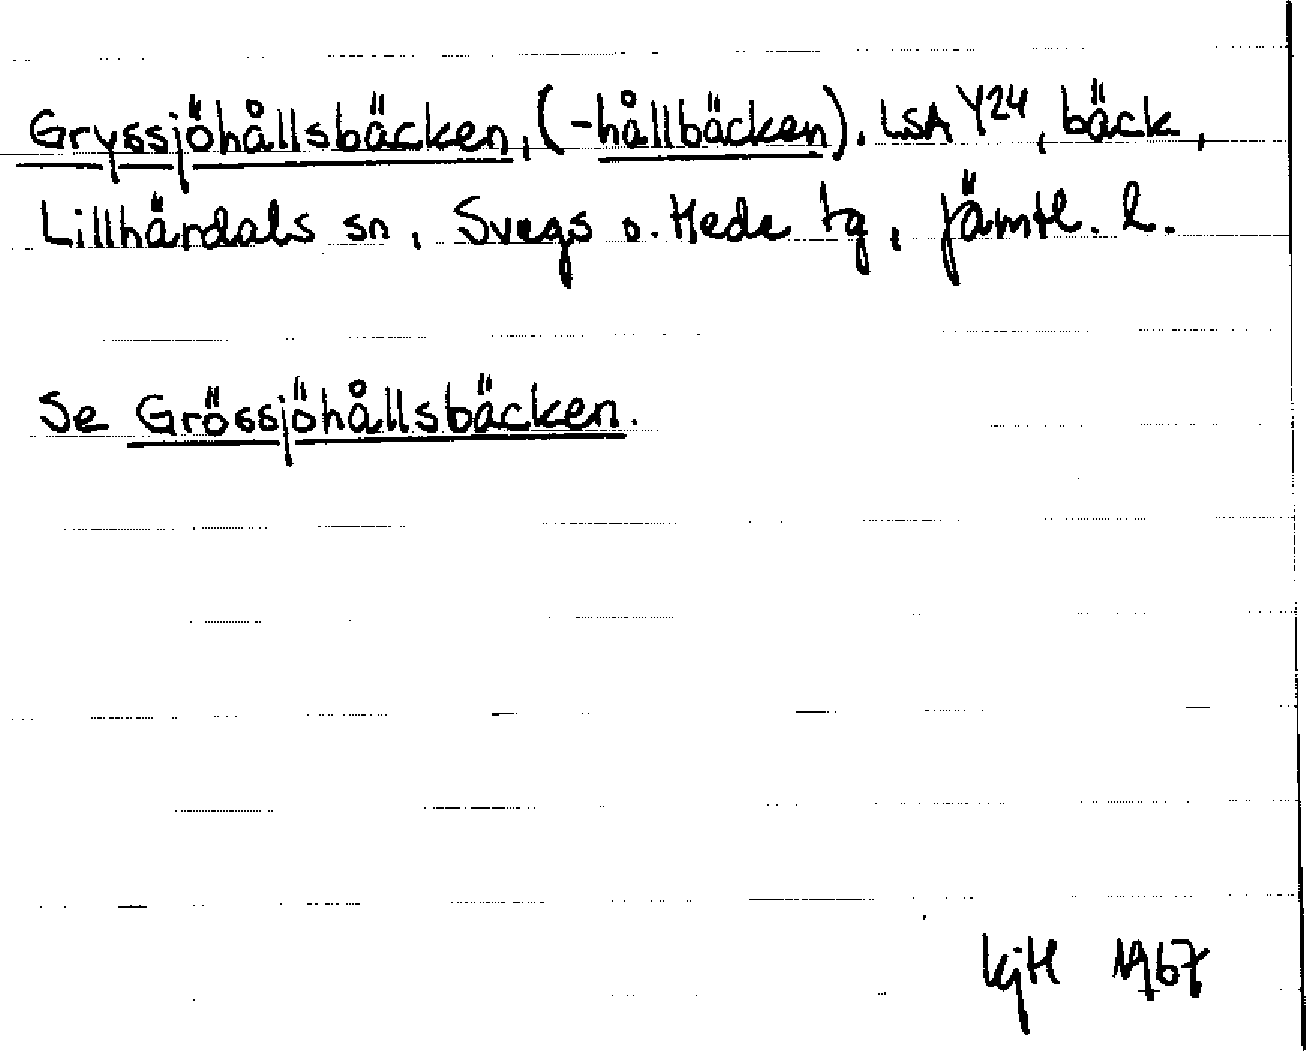 Gryssjöhållsbäcken, (-hållbäcken). LSA Y24, bäck,
Lillhärdals sn, Svegs o. Hede tg, Jämtl. l.
Se Grössjöhållsbäcken.
KjH 1967